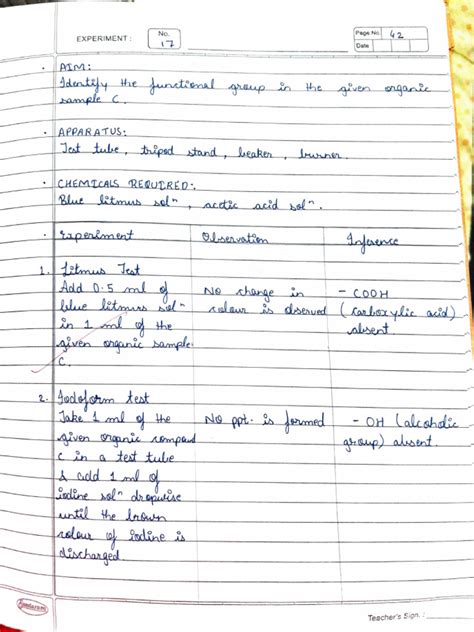 EXPERIMENT : No. 17 Page No. 42
Date
• AIM:
Identify the functional group in the given organic
sample C.
• APPARATUS:
Test tube, tripod stand, beaker, burner.
• CHEMICALS REQUIRED:
Blue litmus solⁿ, acetic acid solⁿ.
• Experiment Observation Inference
1. Litmus Test
Add 0.5 ml of No change in - COOH
blue litmus solⁿ colour is observed (carboxylic acid)
in 1 ml of the absent.
given organic sample
C.
2. Iodoform test
Take 1 ml of the No ppt. is formed - OH (alcoholic
given organic compound group) absent.
C in a test tube
& add 1 ml of
iodine solⁿ dropwise
until the brown
colour of iodine is
discharged
Sundaram
Teacher's Sign. :